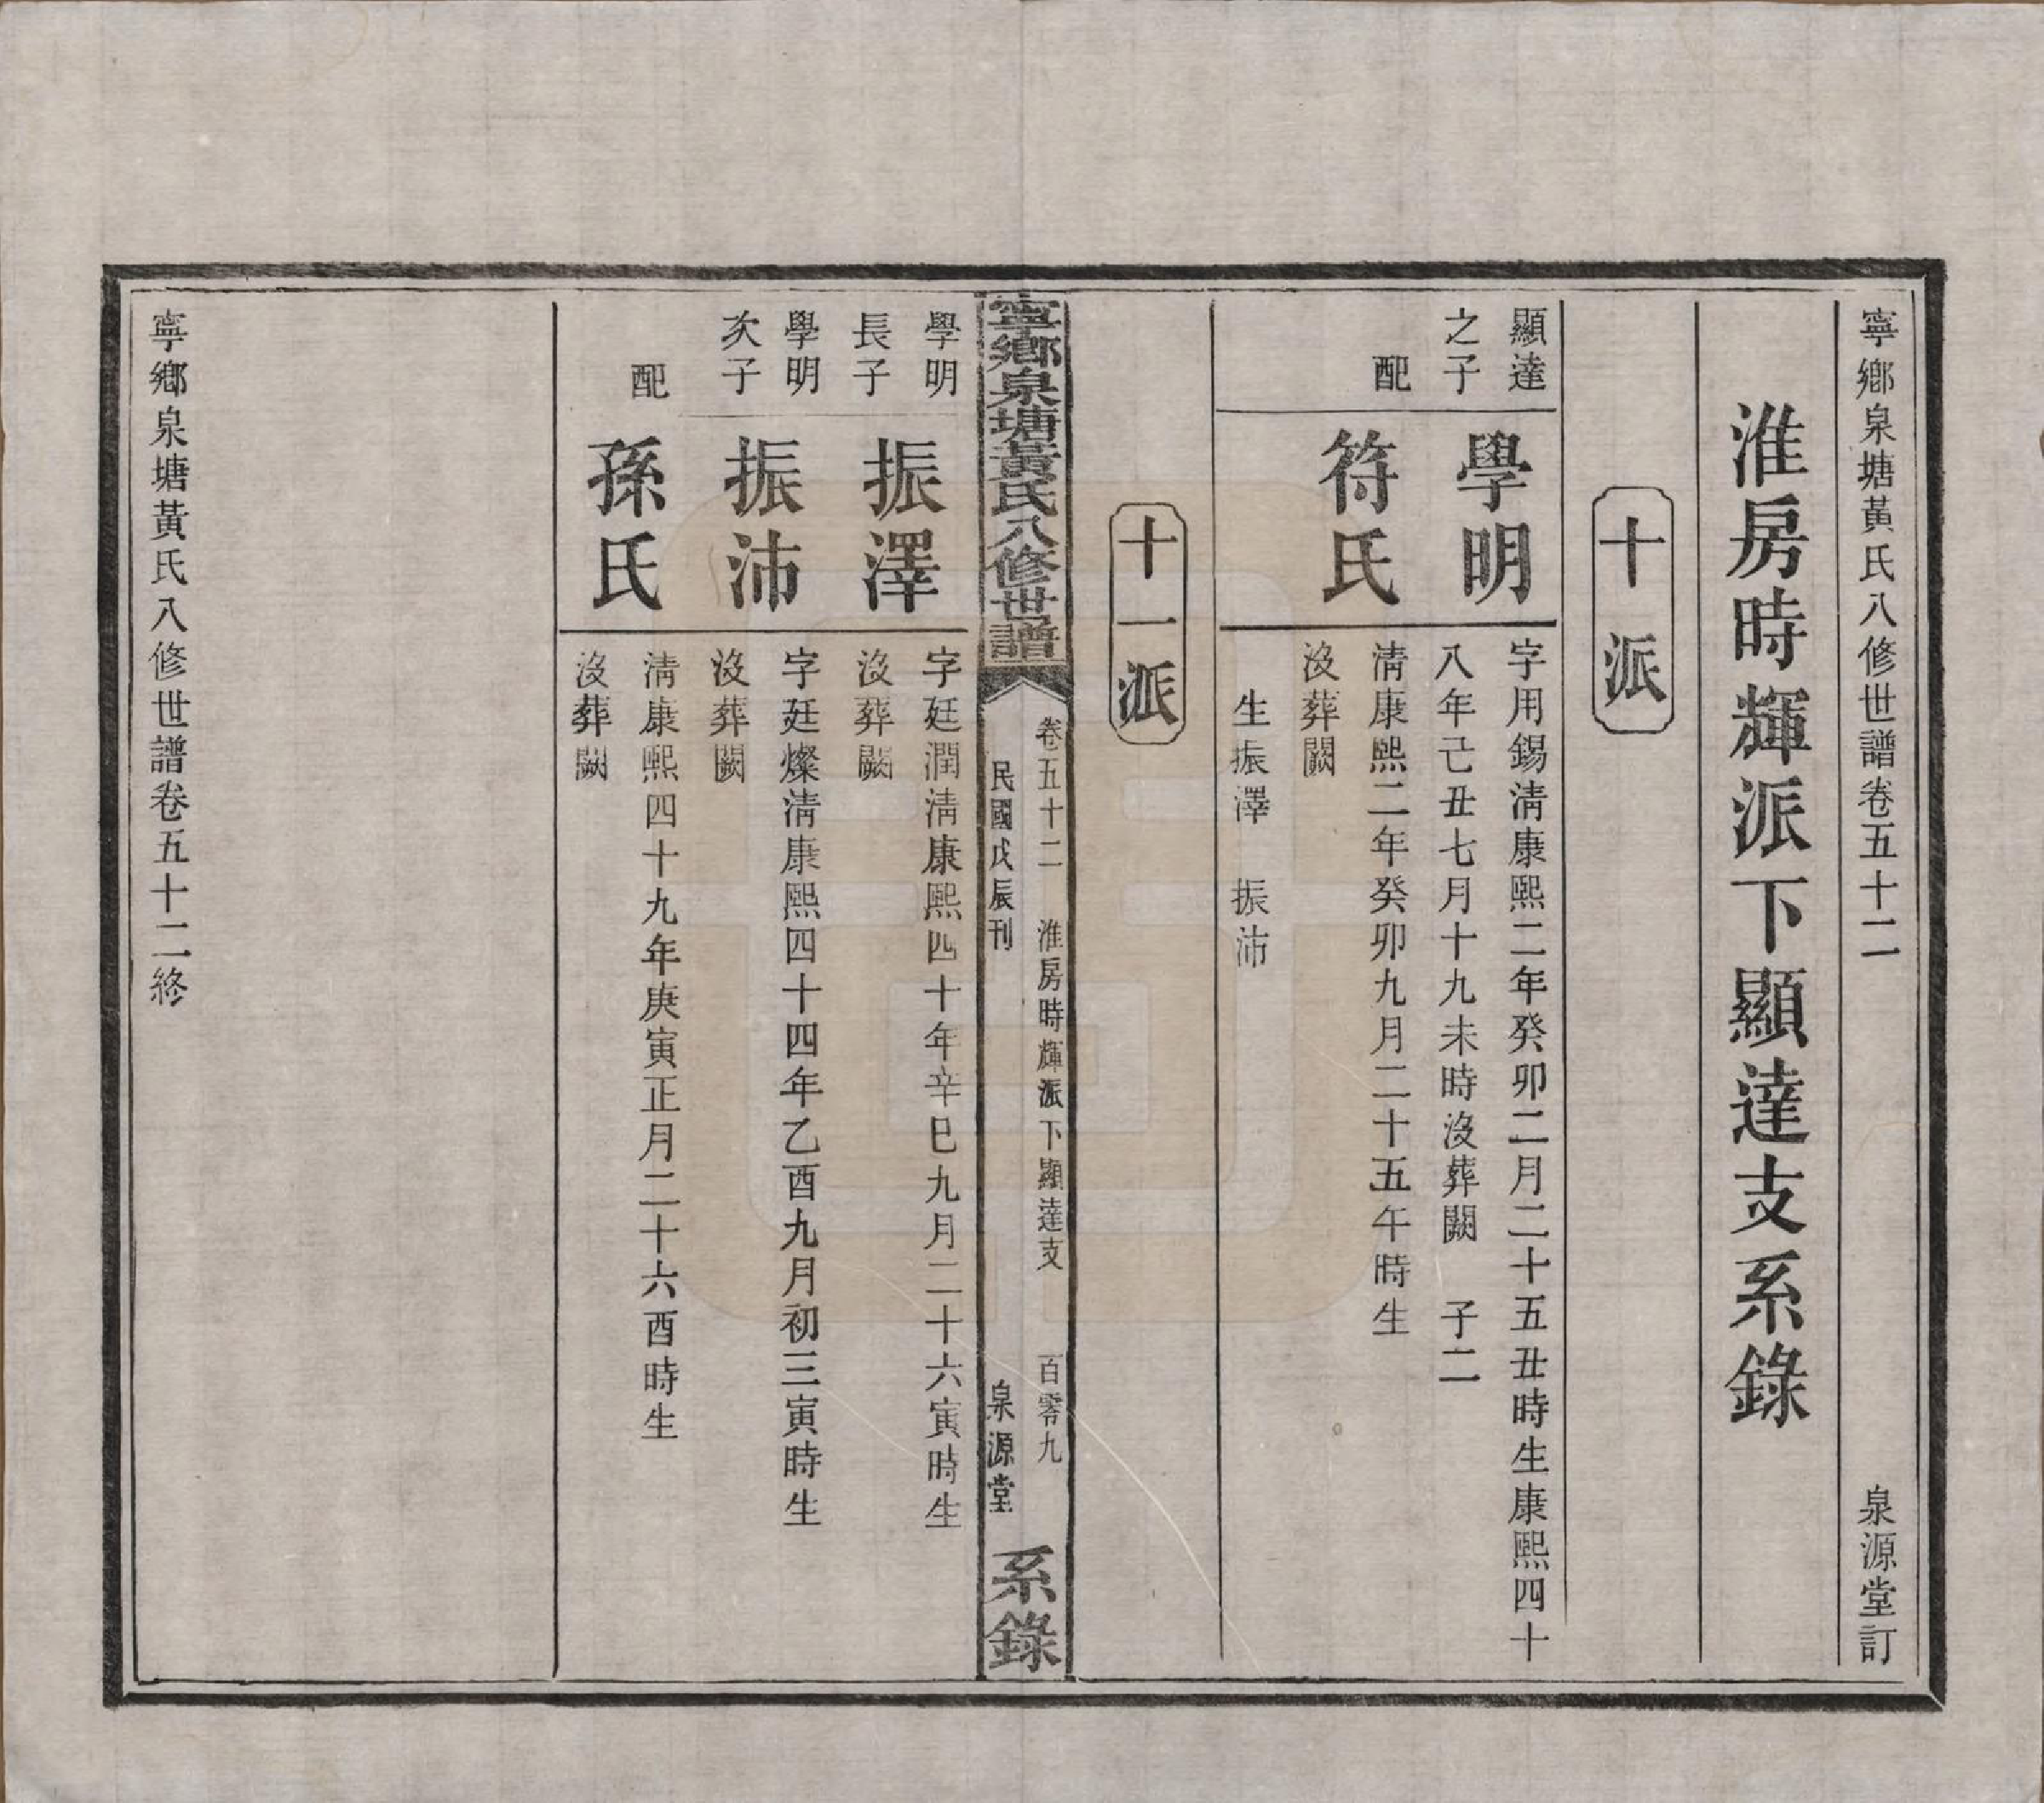 寧鄉泉塘黃氏八修世譜卷五十二　泉源堂訂
淮房時輝派下顯達支系錄
十派
顯達之子
學明
字用錫清康熙二年癸卯二月二十五丑時生康熙四十
八年己丑七月十九未時沒葬闕　子二
配
符氏
清康熙二年癸卯九月二十五午時生
沒葬闕
生振澤　振沛
十一派
寧鄉泉塘黃氏八修世譜
卷五十二　淮房時輝派下顯達支　百零九
民國戊辰刊　泉源堂
系錄
學明長子
振澤
字廷潤清康熙四十年辛巳九月二十六寅時生
沒葬闕
學明次子
振沛
字廷燦清康熙四十四年乙酉九月初三寅時生
沒葬闕
配
孫氏
清康熙四十九年庚寅正月二十六酉時生
沒葬闕
寧鄉泉塘黃氏八修世譜卷五十二終